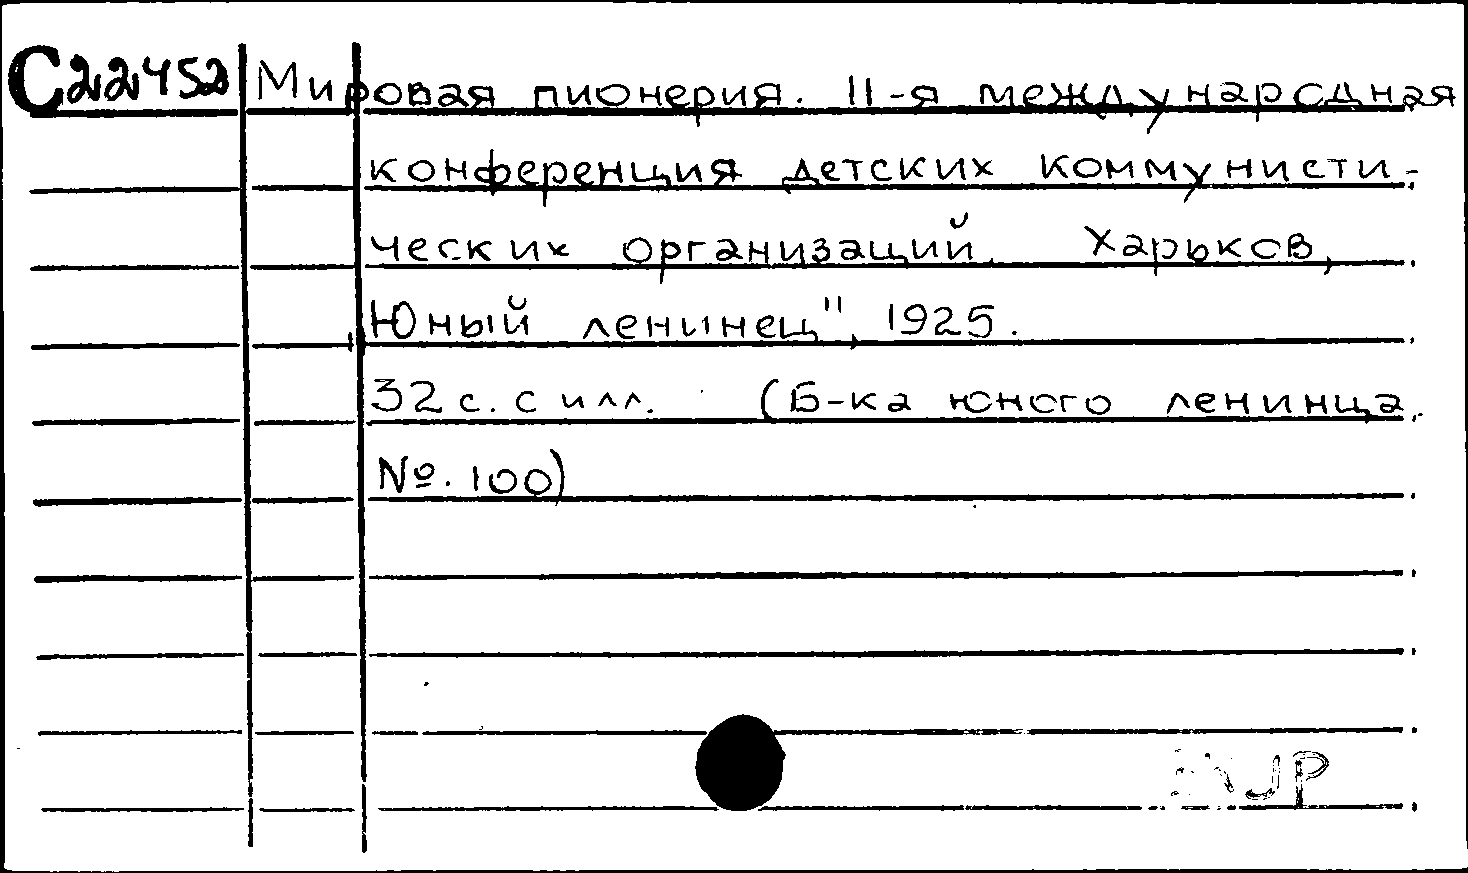 C22452 Мировая пионерия. II-я международная
конференция детских коммунисти-
ческих организаций. Харьков,
"Юный ленинец", 1925.
32 с. с илл. (Б-ка юного ленинца.
№. 100)